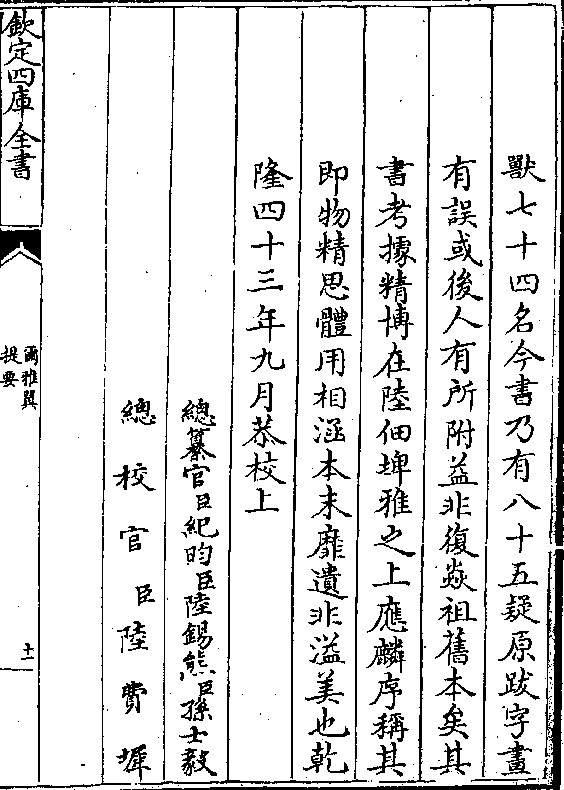 獸七十四名今書乃有八十五疑原跋字畫
有誤或後人有所附益非復焱祖舊本矣其
書考據精博在陸佃埤雅之上應麟序稱其
即物精思體用相涵本末靡遺非溢美也乾
隆四十三年九月恭校上
總纂官臣紀昀臣陸錫熊臣孫士毅
總校官臣陸費墀
欽定四庫全書
爾雅翼
提要
十一